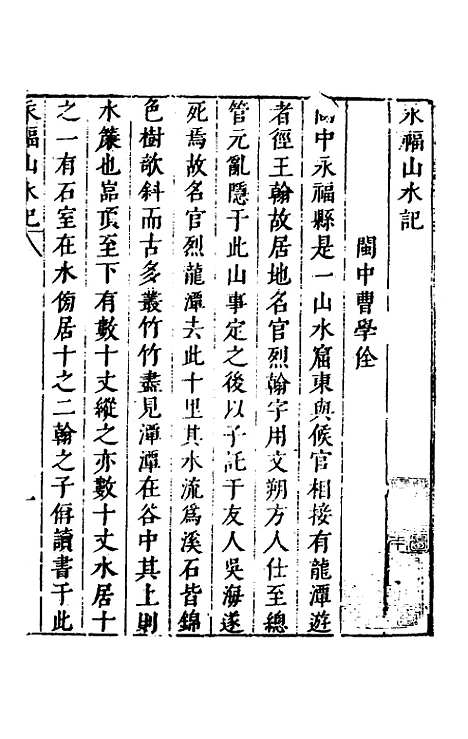 永福山水記
閩中曹學佺
閩中永福縣是一山水窟東與候官相接有龍潭遊
者徑王翰故居地名官烈翰字用文朔方人仕至總
管元亂隱于此山事定之後以子託于友人吳海遂
死焉故名官烈龍潭去此十里其水流爲溪石皆錦
色樹欹斜而古多叢竹竹盡見潭潭在谷中其上則
水簾也崇頂至下有數十丈縱之亦數十丈水居十
之一有石室在水傍居十之二翰之子偁讀書于此
永福山水記
一